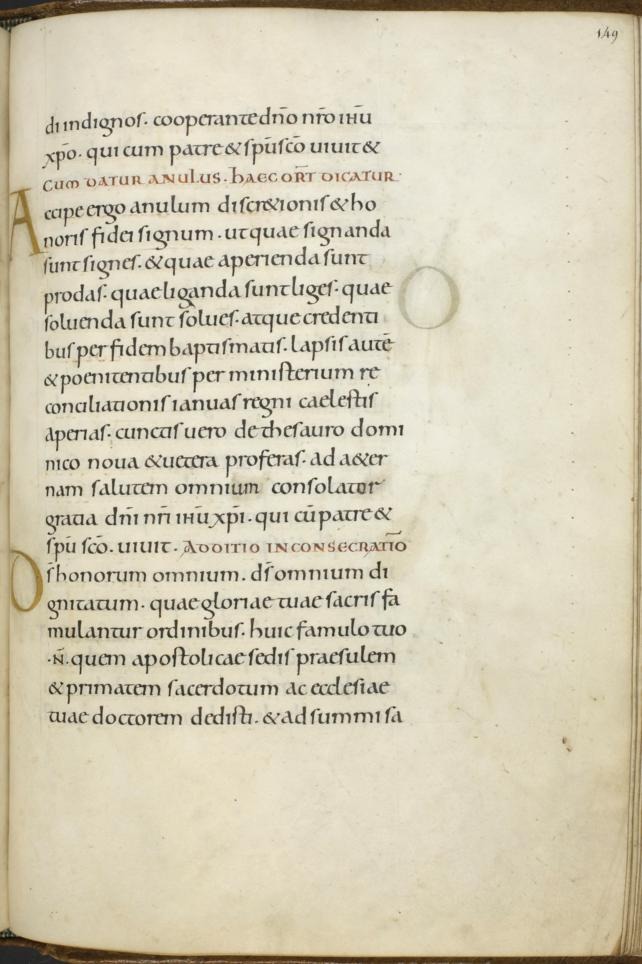 149
di indignos. cooperante dn̄o nr̄o ihū
xp̄o. qui cum patre & sp̄u sc̄o uiuit &
CUM DATUR ANULUS. HAEC ORT̄ DICATUR.
Accipe ergo anulum discr&ionis & ho
noris fidei signum. ut quae signanda
sunt signes. & quae aperienda sunt
prodas. quae liganda sunt liges. quae
soluenda sunt solues. atque credenti
bus per fidem baptismatis. lapsis autē
& poenitentibus per ministerium re
conciliationis ianuas regni caelestis
aperias. cunctis uero de thesauro domi
nico noua & uetera proferas. ad a&er
nam salutem omnium consolatur
gratia dn̄i nr̄i ihū xp̄i. qui cū patre &
sp̄u sc̄o. uiuit. ADDITIO IN CONSECRATIO
D̄s honorum omnium. ds̄ omnium di
gnitatum. quae gloriae tuae sacris fa
mulantur ordinibus. huic famulo tuo
.N̄. quem apostolicae sedis praesulem
& primatem sacerdotum ac ecclesiae
tuae doctorem dedisti. & ad summi sa